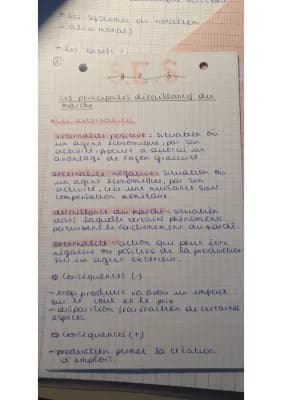 - les systèmes de notation
- les labels
SES
Les principales défaillances du
marché
externalité positive = situation où
un agent économique, par son
activité, procure à autrui un
avantage de façon gratuite
externalité négative = situation où
un agent économique, par son
activité, crée une nuisance sans
compensation monétaire
défaillance du marché = situation
dans laquelle certains phénomènes
perturbent le fonctionnement du marché.
externalité = action qui peut être
négative ou positive de la production
sur un agent extérieur.
⇨ Conséquences (-)
- trop produire va avoir un impact
sur le coût et le prix
- disparition / raréfaction de certaines
espèces
⇨ Conséquences (+)
- production permet la création
d'emplois